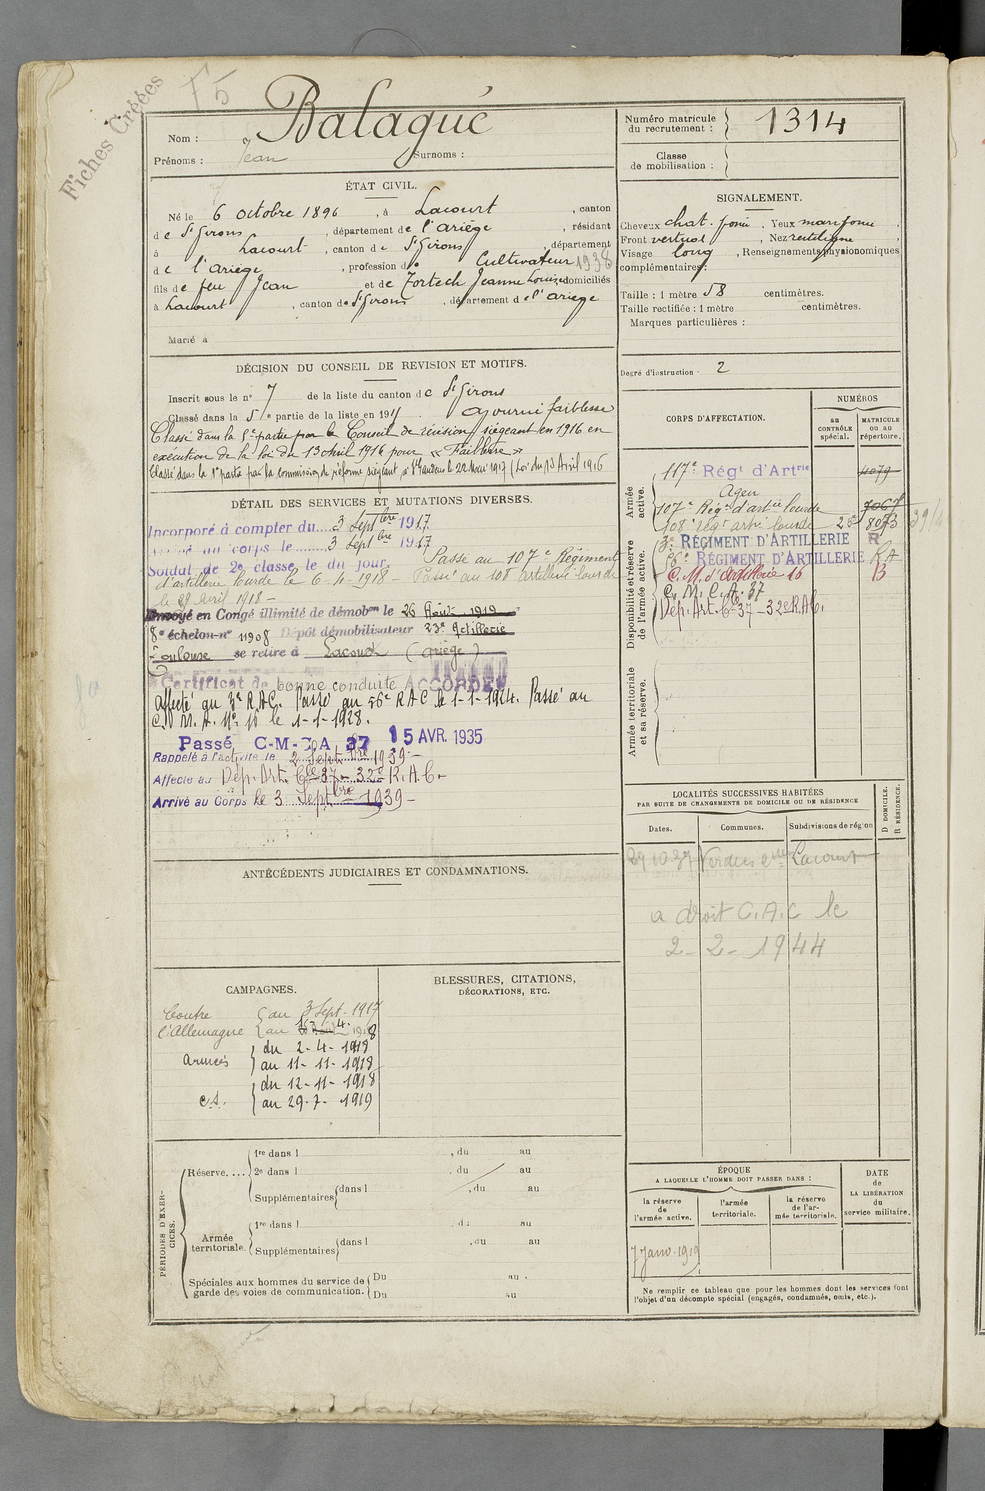 Fiches Créées
Nom : Balagué
Prénoms : Jean Surnoms :
ÉTAT CIVIL.
Né le 6 octobre 1896, à Lacourt, canton
de St Girons, département de l'ariège, résidant
à Lacourt, canton de St Girons, département
de l'ariège, profession de Cultivateur 1938
fils de feu Jean et de Fortech Jeanne Louise domiciliés
à Lacourt, canton de St Girons, département de l'ariège
Marié à
DÉCISION DU CONSEIL DE REVISION ET MOTIFS.
Inscrit sous le n° 7 de la liste du canton de St Girons
Classé dans la 5e partie de la liste en 191 . ajourné faiblesse
Classé dans la 5e partie par le Conseil de révision siégeant en 1916 en
exécution de la loi du 13 avril 1916 pour « Faiblesse »
Classé dans la 1e partie par la commission de réforme siégeant à le 22 Mai 1917 (Loi du 13 Avril 1916
DÉTAIL DES SERVICES ET MUTATIONS DIVERSES.
Incorporé à compter du 3 Septbre 1917
au corps le 3 Septbre 1917
Soldat de 2e classe le du jour. Passé au 107e Régiment
d'artillerie lourde le 6-4-1918 – Passé au 108 artillerie lourde
le 29 avril 1918 –
Envoyé en Congé illimité de démobon le 26 Août 1919
8e échelon n° 11908 Dépôt démobilisateur 23e Artillerie
Toulouse se retire à Lacourt (ariège)
Certificat de bonne conduite ACCORDÉ
Affecté au 3e R.A.C. Passé au 56e RAC le 1-1-1924. Passé au
C. M. A. N° 16 le 1-1-1928.
Passé C-M-A 37 15 AVR. 1935
Rappelé à l'activité le 2 Septbre 1939 –
Affecté au Dép. Art. Cie 37 – 32e R.A.C.
Arrivé au Corps le 3 Septbre 1939 –
ANTÉCÉDENTS JUDICIAIRES ET CONDAMNATIONS.
CAMPAGNES.
Contre l'Allemagne { du 3 Sept. 1917
au 1918
Armées { du 2-4-1918
au 11-11-1918
c.s. { du 12-11-1918
au 29-7-1919
BLESSURES, CITATIONS,
DÉCORATIONS, ETC.
PÉRIODES D'EXERCICES.
Réserve.... 1re dans l , du au
2e dans l , du au
Supplémentaires dans l , du au
Armée territoriale. 1re dans l , du au
Supplémentaires dans l , du au
Spéciales aux hommes du service de Du au
garde des voies de communication. Du au
Numéro matricule
du recrutement : 1314
Classe
de mobilisation :
SIGNALEMENT.
Cheveux chat. foncé, Yeux mar. foncé,
Front vertical, Nez rectiligne,
Visage long, Renseignements physionomiques
complémentaires :
Taille : 1 mètre 58 centimètres.
Taille rectifiée : 1 mètre centimètres.
Marques particulières :
Degré d'instruction 2
CORPS D'AFFECTATION.
NUMÉROS
au CONTRÔLE spécial.
MATRICULE ou au répertoire.
Armée active.
117e Régt d'Artrie 4079
Agen
107e Régt d'artie lourde
108e regt artie lourde 8073
Disponibilité et réserve de l'armée active.
3e RÉGIMENT D'ARTILLERIE R
56e RÉGIMENT D'ARTILLERIE RA
C. M. d'artillerie 16 B
C. M. C. A. 37
Dép. Art. Cie 37 – 32e R.A.C.
Armée territoriale et sa réserve.
LOCALITÉS SUCCESSIVES HABITÉES
PAR SUITE DE CHANGEMENTS DE DOMICILE OU DE RÉSIDENCE
Dates. Communes. Subdivisions de région
D. DOMICILE.
R. RÉSIDENCE.
Lacourt
a droit C.A.C le
2-2-1944
ÉPOQUE
A LAQUELLE L'HOMME DOIT PASSER DANS :
la réserve de l'armée active.
l'armée territoriale.
la réserve de l'armée territoriale.
DATE
de
LA LIBÉRATION
du
service militaire.
7 janv. 1919
Ne remplir ce tableau que pour les hommes dont les services font
l'objet d'un décompte spécial (engagés, condamnés, omis, etc.).